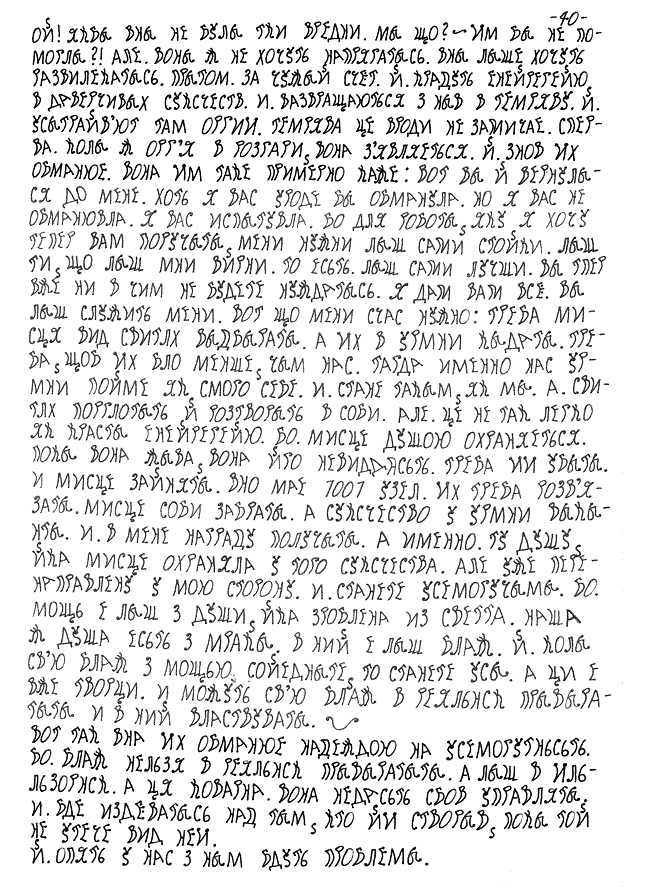 -40-
ОЙ! ЯКБЫ ВНА НЕ БУЛА ТКИ ВРЕДНИ. МЫ ЩО? ~ ИМ БЫ НЕ ПО-
МОГЛЫ?! АЛЕ. ВОНА Ж НЕ ХОЧУТЬ НАПРЯГАТЫСЬ. ВНА ЛЫШЕ ХОЧУТЬ
РАЗВИЛЕКАТЫСЬ. ПРЫТОМ. ЗА ЧУЖЫЙ СЧЕТ. Й. КРАДУТЬ ЕНЕЙРЕГЕЙЮ,
В ДОВЕРЧИВЫХ СУЖСЧЕСТВ. И. ВАЗВРАЩАЮТЬСЯ З НЫВ В ТЕМРЯВУ. Й.
УСЫТРАЙВ'ЮТ ТАМ ОРГИИ. ТЕМРЯВА ЦЕ ВРОДИ НЕ ЗАМИЧАЕ. СПЕР-
ВА. КОЛЫ Ж ОРГ'Я В РОЗГАРИ, ВОНА З'ЯВЛЯЕТЬСЯ. Й. ЗНОВ ИХ
ОБМАНЮЕ. ВОНА ИМ ТАКЕ ПРИМЕРНО КАЖЕ: ВОТ ВЫ Й ВЕРНУЛЫ-
СЯ ДО МЕНЕ. ХОТЬ Я ВАС УРОДЕ БЫ ОБМАНУЛА. НО Я ВАС НЕ
ОБМАНЮВЛА. Я ВАС ИСПЫТУВЛА. БО ДЛЯ РОБОТЫ, ЯКУ Я ХОЧУ
ТЕПЕР ВАМ ПОРУЧЫТЫ, МЕНИ НУЖНИ ЛЫШ САМИ СТОЙКИ. ЛЫШ
ТИ, ЩО ЛЫШ МНИ ВИРНИ. ТО ЕСЬТЬ. ЛЫШ САМИ ЛУЧШИ. ВЫ ТПЕР
ВЖЕ НИ В ЧИМ НЕ БУДЕТЕ НУЖДАТЫСЬ. Я ДАМ ВАМ ВСЁ. ВЫ
ЛЫШ СЛУЖИТЬ МЕНИ. ВОТ ЩО МЕНИ СЧАС НУЖНО: ТРЕБА МИ-
СЦЯ ВИД СВИТЛЯ ВЫДБЫРАТЫ. А ИХ В УРМНИ КЫДАТЫ. ТРЕ-
БА, ЩОБ ИХ БЛО МЕНЩЕ, ЧЫМ НАС. ТАГДА ИМЕННО НАС УР-
МНИ ПОЙМЕ ЯК СМОГО СЕБЕ. И. СТАНЕ ТАКЫМ, ЯК МЫ. А. СВИ-
ТЛЯ ПОГЛОТЫТЬ Й РОЗТВОРЫТЬ В СОБИ. АЛЕ. ЦЕ НЕ ТАК ЛЕГКО
ЯК КРАСТЫ ЕНЕЙРЕГЕЙЮ. БО. МИСЦЕ ДУШОЮ ОХРАНЯЕТЬСЯ.
ПОКЫ ВОНА ЖЫВА, ВОНА ЙГО НЕВИДДАСЬТЬ. ТРЕБА ИИ УБЫТЫ.
И МИСЦЕ ЗАЙНЯТЫ. ВНО МАЕ 1001 УЗЕЛ. ИХ ТРЕБА РОЗВ'Я-
ЗАТЫ. МИСЦЕ СОБИ ЗАБРАТЫ. А СУЖСЧЕСТВО У УРМНИ ВЫКЫ-
НТЫ. И. В МЕНЕ НАГРАДУ ПОЛУЧЫТЫ. А ИМЕННО. ТУ ДУШУ,
ЙКА МИСЦЕ ОХРАНЯЛА У ТОГО СУЖСЧЕСТВА. АЛЕ УЖЕ ПЕРЕ-
НАПРАВЛЕНУ У МОЮ СТОРОНУ. И. СТАНЕТЕ УСЕМОГУЧЫМЫ. БО.
МОЩЬ Е ЛЫШ З ДУШИ, ЙКА ЗРОБЛЕНА ИЗ СВЕТТА. НАША
Ж ДУША ЕСЬТЬ З МРАКЫ. В НИЙ Е ЛЫШ БЛАЖ. Й. КОЛЫ
СВ'Ю БЛАЖ З МОЩЬЮ, СОЙЕДНЫТЕ, ТО СТАНЕТЕ УСЫ. А ЦИ Е
ВЖЕ ТВОРЦИ. И МОЖУТЬ СВ'Ю БЛАЖ В РЕЯЛЬНСК ПРЫВЫРА-
ТЫТЫ И В НИЙ ВЛАСТВУВАТЫ.
ВОТ ТАК ВНА ИХ ОБМАНЮЕ НАДЕЖДОЮ НА УСЕМОГУТНЬСЬТЬ.
БО. БЛАЖ НЕЛЬЗЯ В РЕЯЛЬНСК ПРЫВЫРАТЫТЫ. А ЛЫШ В ИЛЬ-
ЛЬЗОРНСК. А ЦЯ КОВАРНА. ВОНА НЕДАСЬТЬ СБОВ УПРАВЛЯТЫ,
И. БДЕ ИЗДЕВАТЫСЬ НАД ТЫМ, КТО ЙИ СТВОРЫВ, ПОКЫ ТОЙ
НЕ УТЕЧЕ ВИД НЕЙ.
Й. ОПЯТЬ У НАС З НЫМ БДУТЬ ПРОБЛЕМЫ.